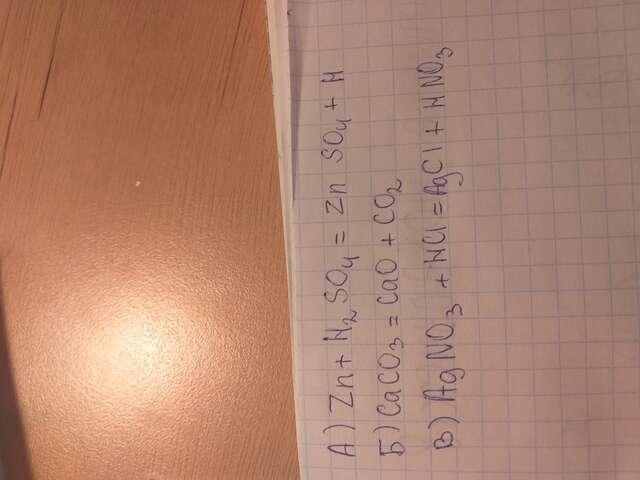 А) Zn + H₂SO₄ = Zn SO₄ + H
Б) CaCO₃ = CaO + CO₂
В) AgNO₃ + HCl = AgCl + HNO₃